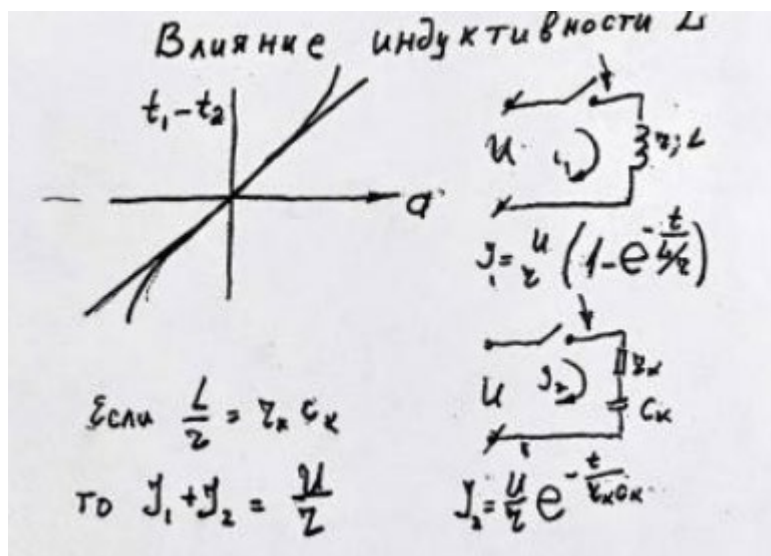 Влияние индуктивности L
t₁-t₂
a
U i₁ r; L
J₁ = U/r (1 - e^(-t/(L/r)))
U J₂ rₖ
Cₖ
Если L/r = rₖ Cₖ
то J₁ + J₂ = U/r
J₂ = U/r e^(-t/(rₖcₖ))